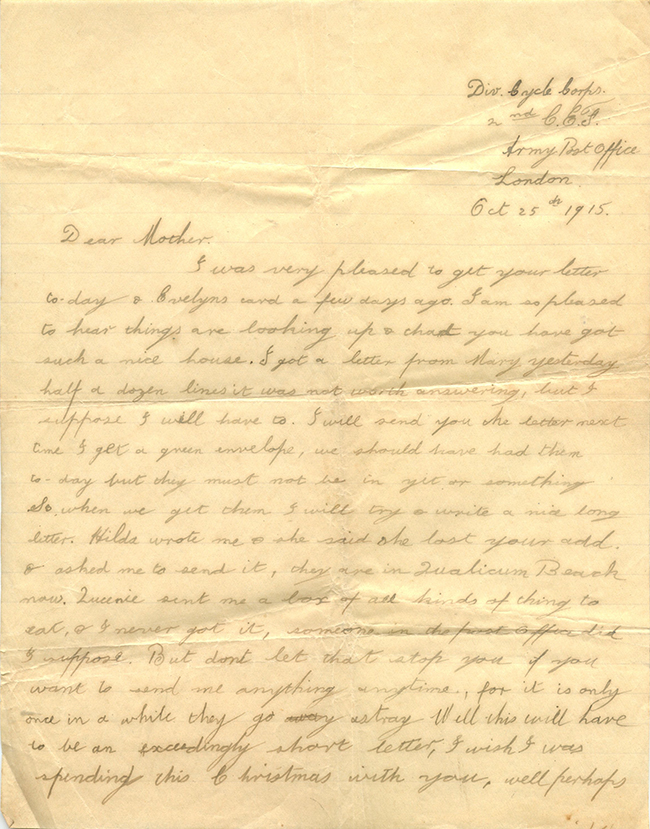 Div. Cycle Corps.
2nd C.E.F.
Army Post Office
London.
Oct 25th 1915.
Dear Mother.
I was very pleased to get your letter
to-day & Evelyns card a few days ago. I am so pleased
to hear things are looking up & that you have got
such a nice house. I got a letter from Mary yesterday
half a dozen lines it was not worth answering, but I
suppose I will have to. I will send you the letter next
time I get a green envelope, we should have had them
to-day but they must not be in yet or something
So when we get them I will try & write a nice long
letter. Hilda wrote me & she said she lost your add.
& asked me to send it, they are in Qualicum Beach
now. Queenie sent me a box of all kinds of thing to
eat, & I never got it, someone in the post office did
I suppose. But dont let that stop you if you
want to send me anything anytime., for it is only
once in a while they go away astray Well this will have
to be an exceedingly short letter, I wish I was
spending this Christmas with you, well perhaps